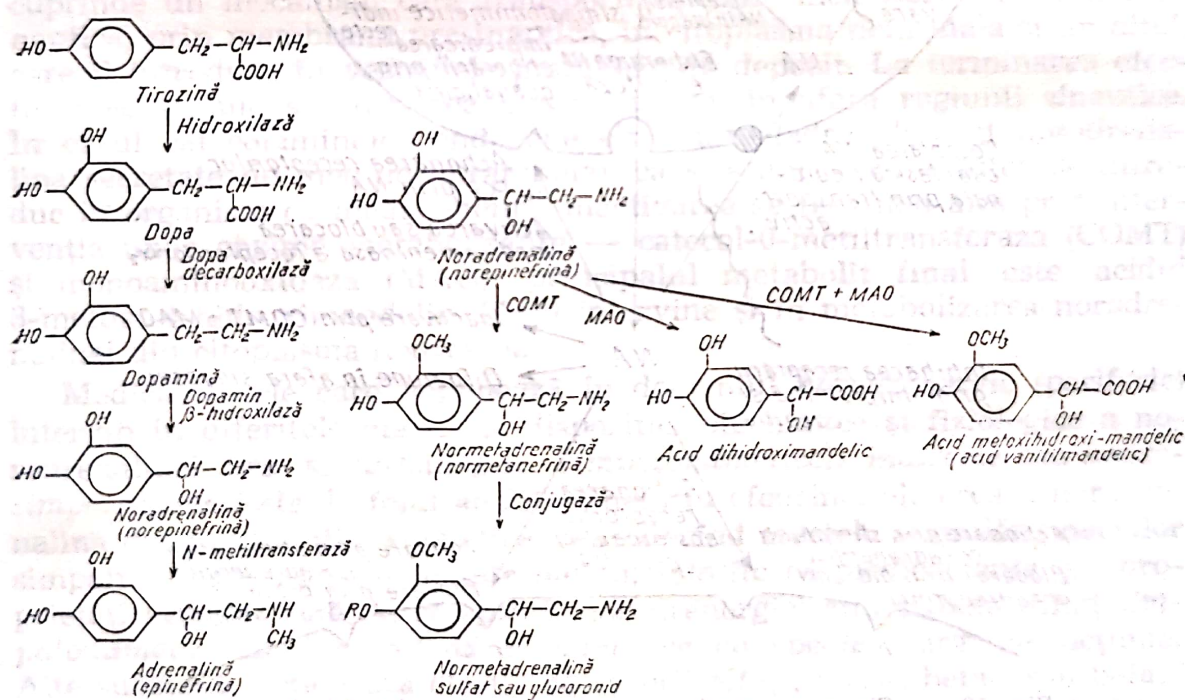 HO
CH₂—CH—NH₂
COOH
Tirozină
Hidroxilază
OH
HO
CH₂—CH—NH₂
COOH
Dopa
Dopa
decarboxilază
OH
HO
CH₂—CH₂—NH₂
Dopamină
Dopamin
β-hidroxilază
OH
HO
CH—CH₂—NH₂
OH
Noradrenalină
(norepinefrină)
N-metiltransferază
OH
HO
CH—CH₂—NH
OH
CH₃
Adrenalină
(epinefrină)
OH
HO
CH—CH₂—NH₂
OH
Noradrenalină
(norepinefrină)
COMT
MAO
COMT + MAO
OCH₃
HO
CH—CH₂—NH₂
OH
Normetadrenalină
(normetanefrină)
Conjugază
OCH₃
RO
CH—CH₂—NH₂
OH
Normetadrenalină
sulfat sau glucoronid
OH
HO
CH—COOH
OH
Acid dihidroximandelic
OCH₃
HO
CH—COOH
OH
Acid metoxihidroxi-mandelic
(acid vanililmandelic)